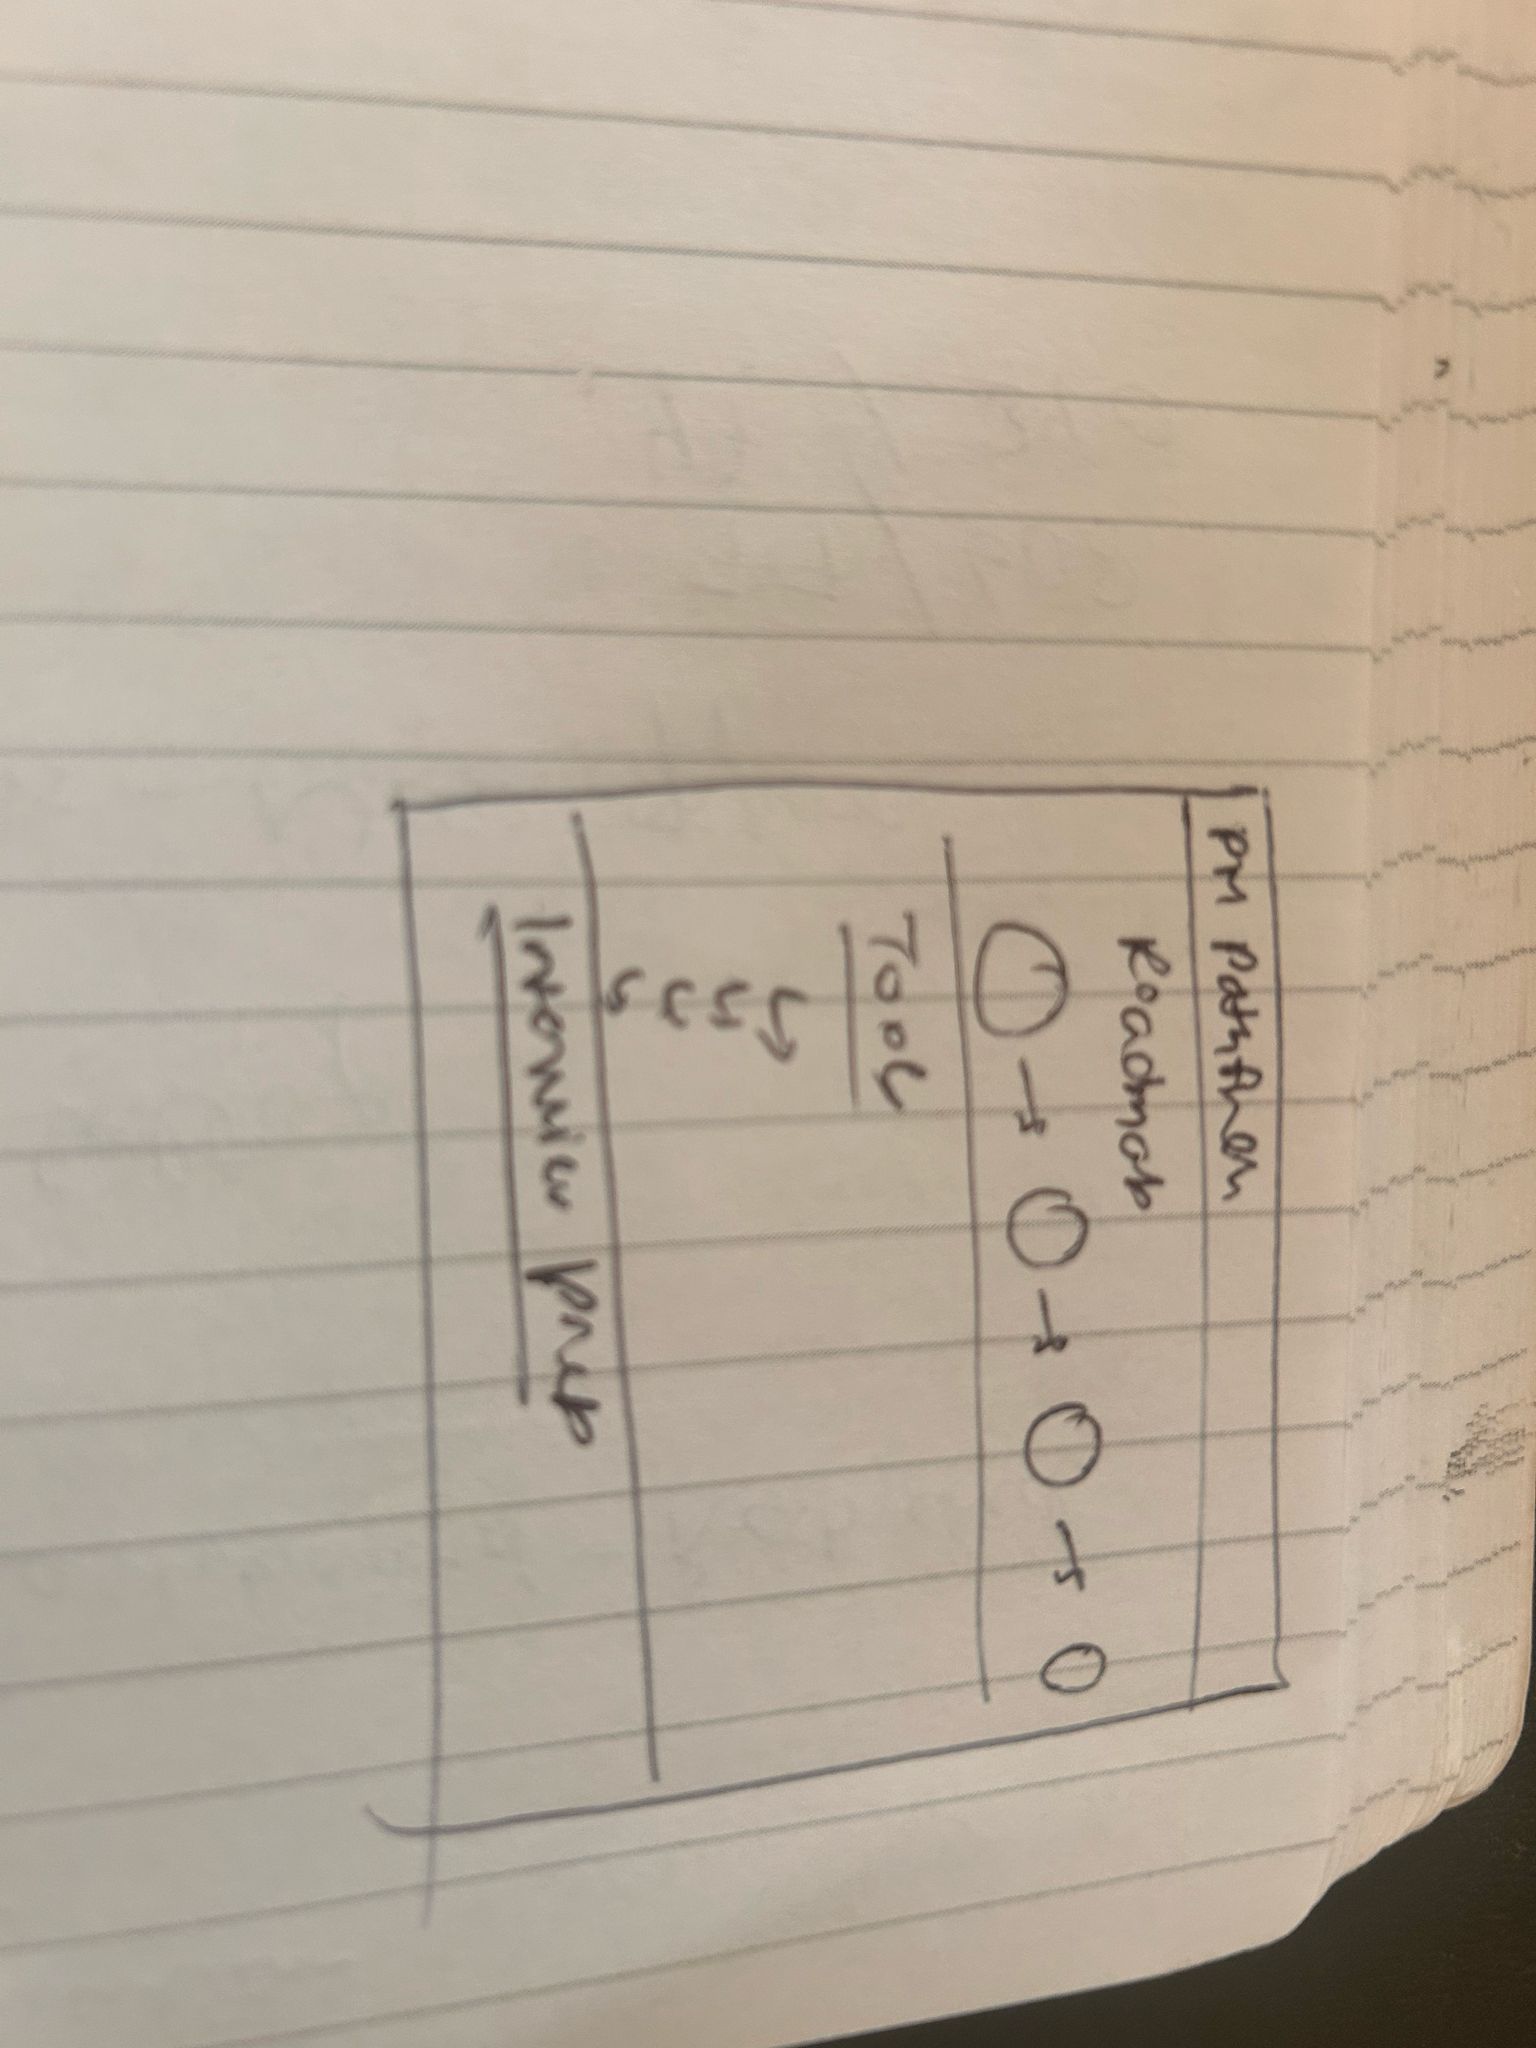 PM Pathfinder
Roadmap
Tools
Interview prep